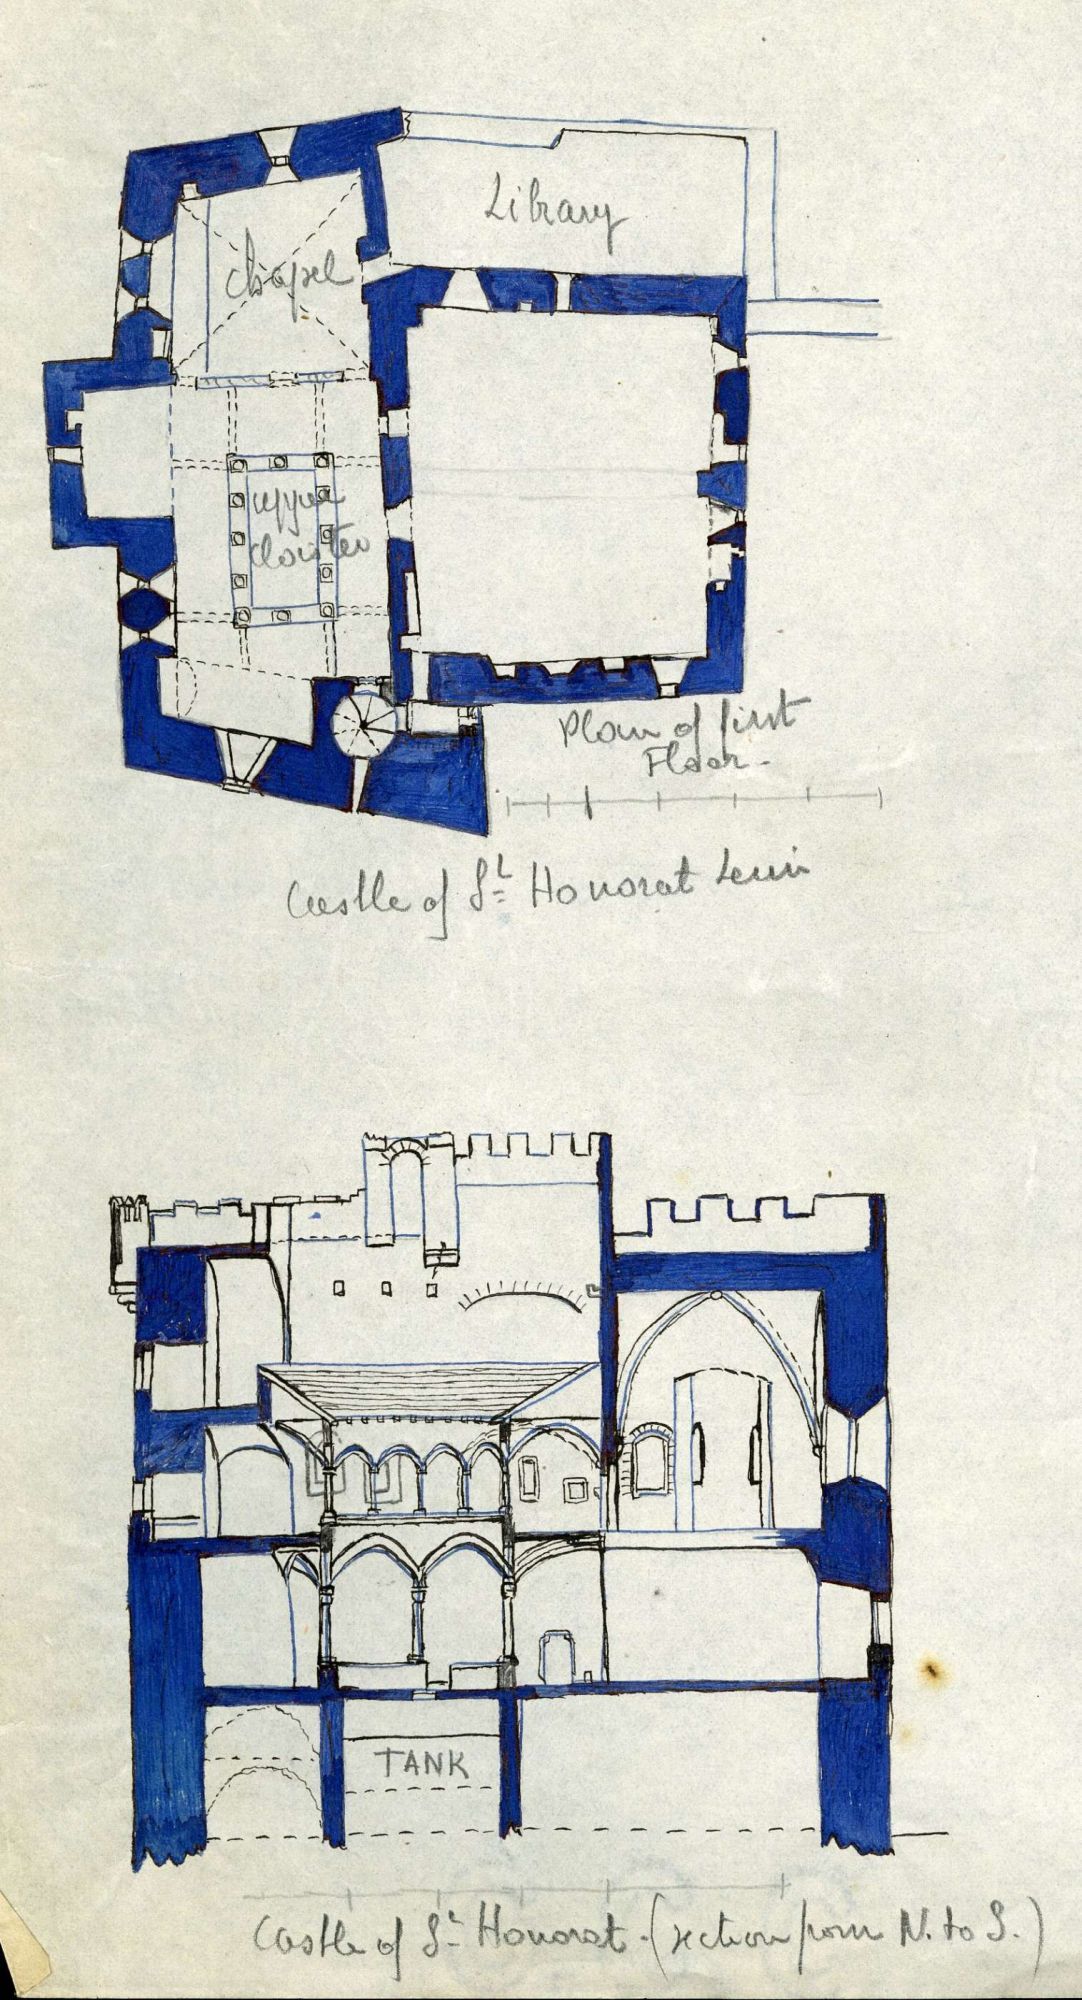 Library
Chapel
upper
cloister
Plan of first
Floor.
Castle of St Honorat
TANK
Castle of St Honorat. (section from N. to S.)